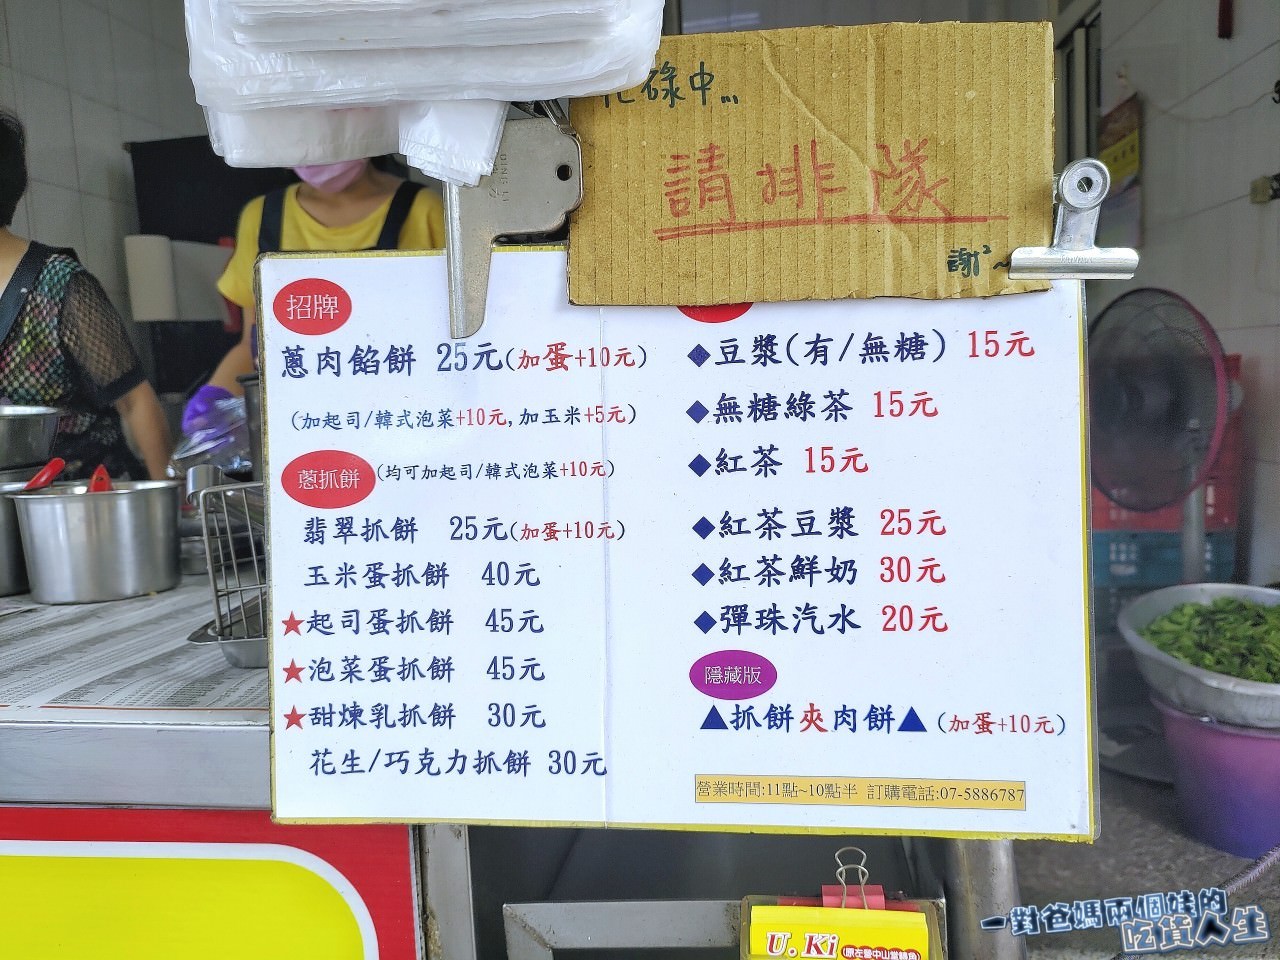 碌中...
請排隊
謝²~
招牌
蔥肉餡餅 25元(加蛋+10元)
(加起司/韓式泡菜+10元,加玉米+5元)
蔥抓餅 (均可加起司/韓式泡菜+10元)
翡翠抓餅 25元(加蛋+10元)
玉米蛋抓餅 40元
★起司蛋抓餅 45元
★泡菜蛋抓餅 45元
★甜煉乳抓餅 30元
花生/巧克力抓餅 30元
◆豆漿(有/無糖) 15元
◆無糖綠茶 15元
◆紅茶 15元
◆紅茶豆漿 25元
◆紅茶鮮奶 30元
◆彈珠汽水 20元
隱藏版
▲抓餅夾肉餅▲ (加蛋+10元)
營業時間:11點~10點半 訂購電話:07-5886787
U. Ki (原左營中山堂轉角)
一對爸媽兩個娃的
吃貨人生